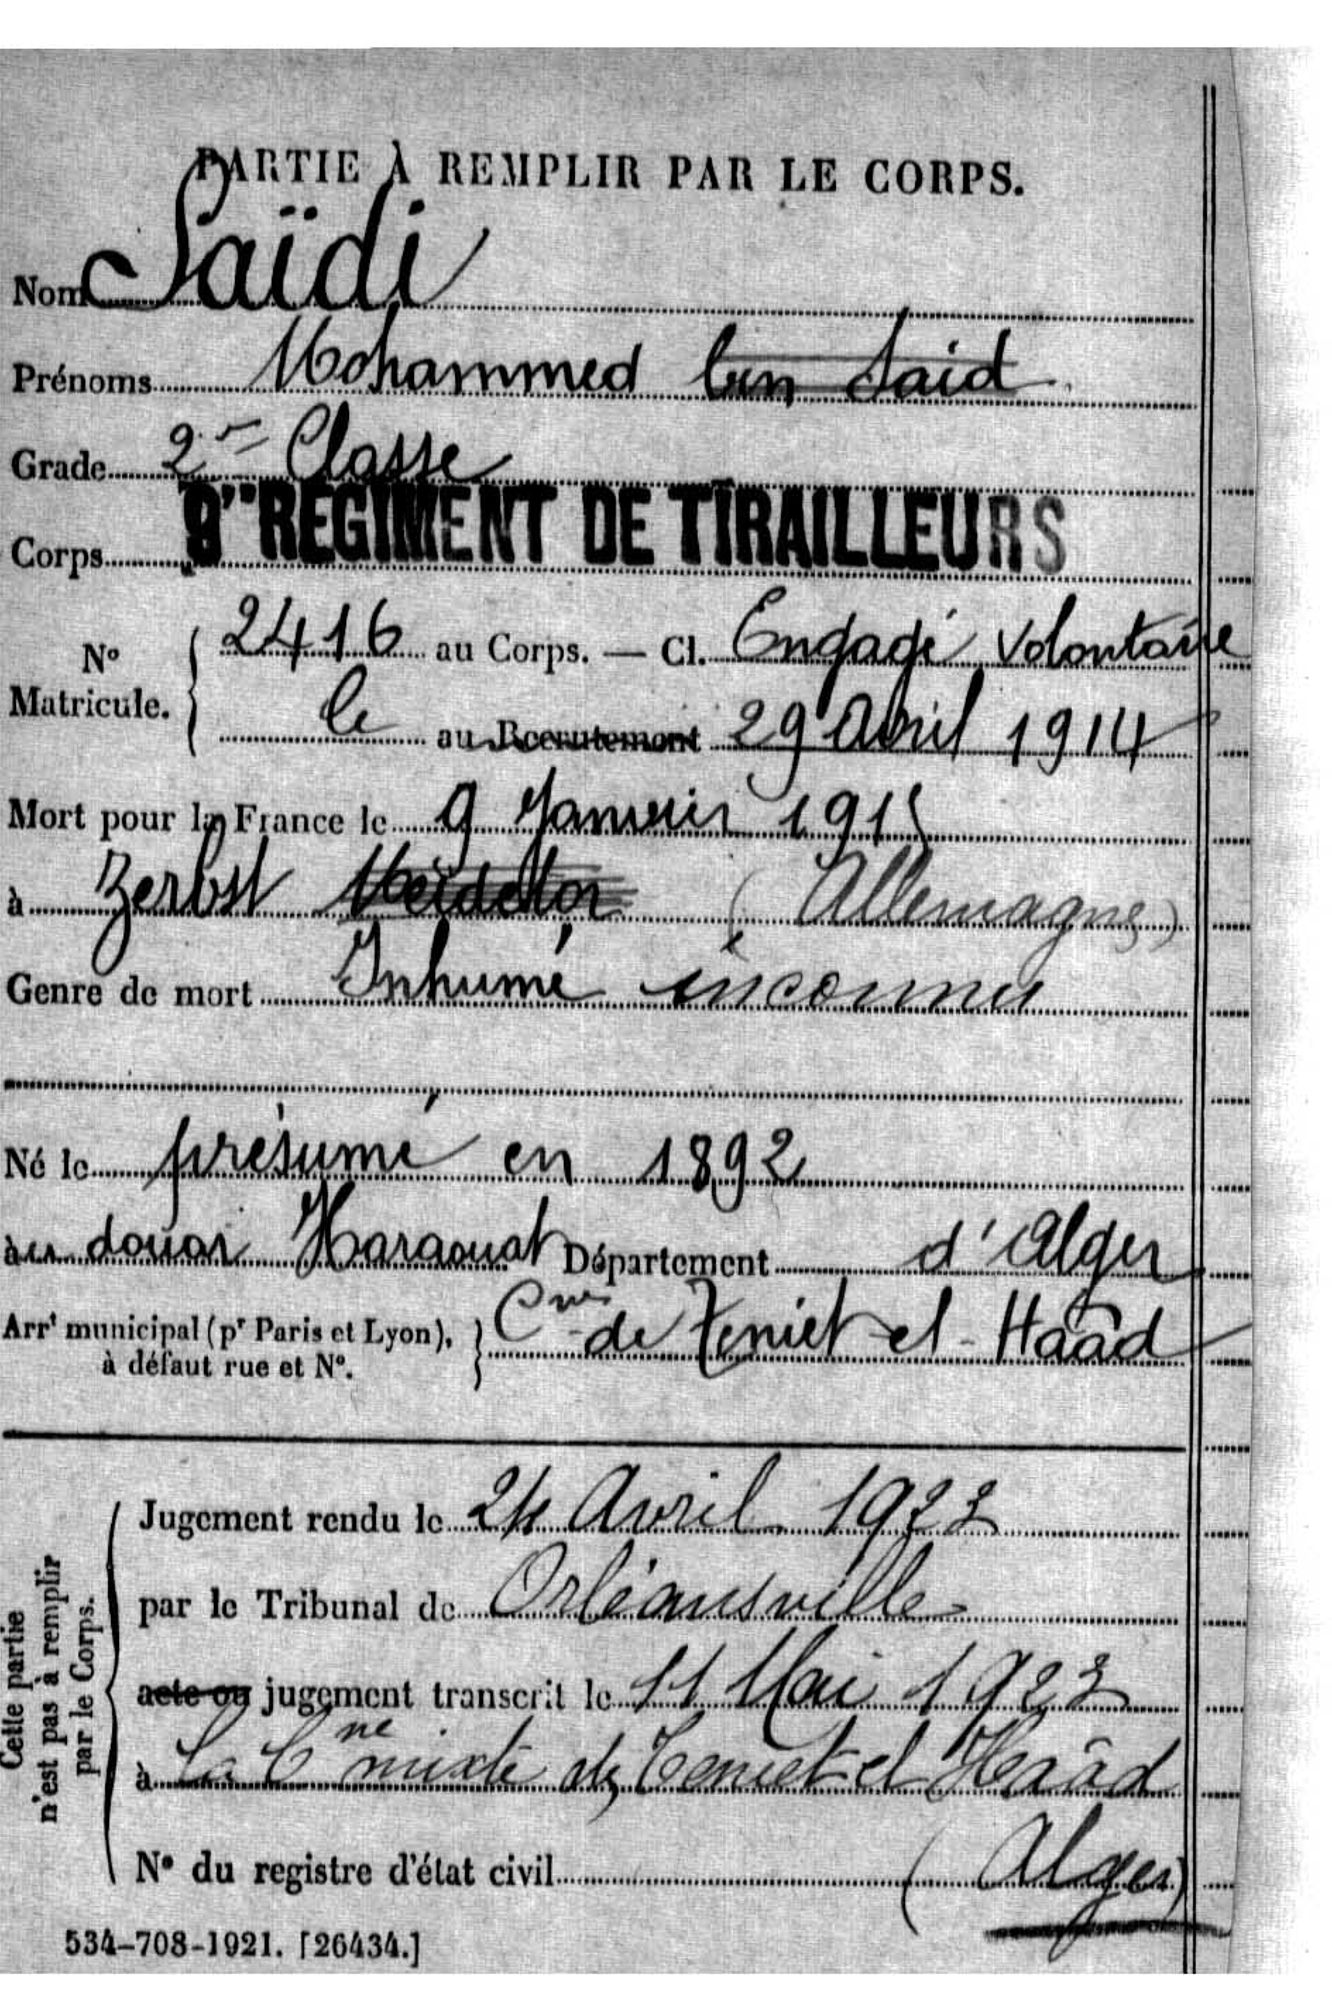 PARTIE À REMPLIR PAR LE CORPS.
Nom Saïdi
Prénoms Mohammed ben Said
Grade 2e Classe
Corps 9me REGIMENT DE TIRAILLEURS
No Matricule. { 2416 au Corps. — Cl. Engagé Volontaire
le au Recrutement 29 Avril 1914
Mort pour la France le 9 Janvier 1915
à Zerbst (Allemagne)
Genre de mort Inhumé inconnu
Né le présumé en 1892
au douar Haraouat Département d'Alger
Arrt municipal (pr Paris et Lyon), à défaut rue et No. } Cne de Teniet-el-Haâd
Cette partie n'est pas à remplir par le Corps.
Jugement rendu le 24 Avril 1923
par le Tribunal de Orléansville
acte ou jugement transcrit le 11 Mai 1923
à la Cne mixte de Teniet el Haâd
No du registre d'état civil (Alger)
534-708-1921. [26434.]